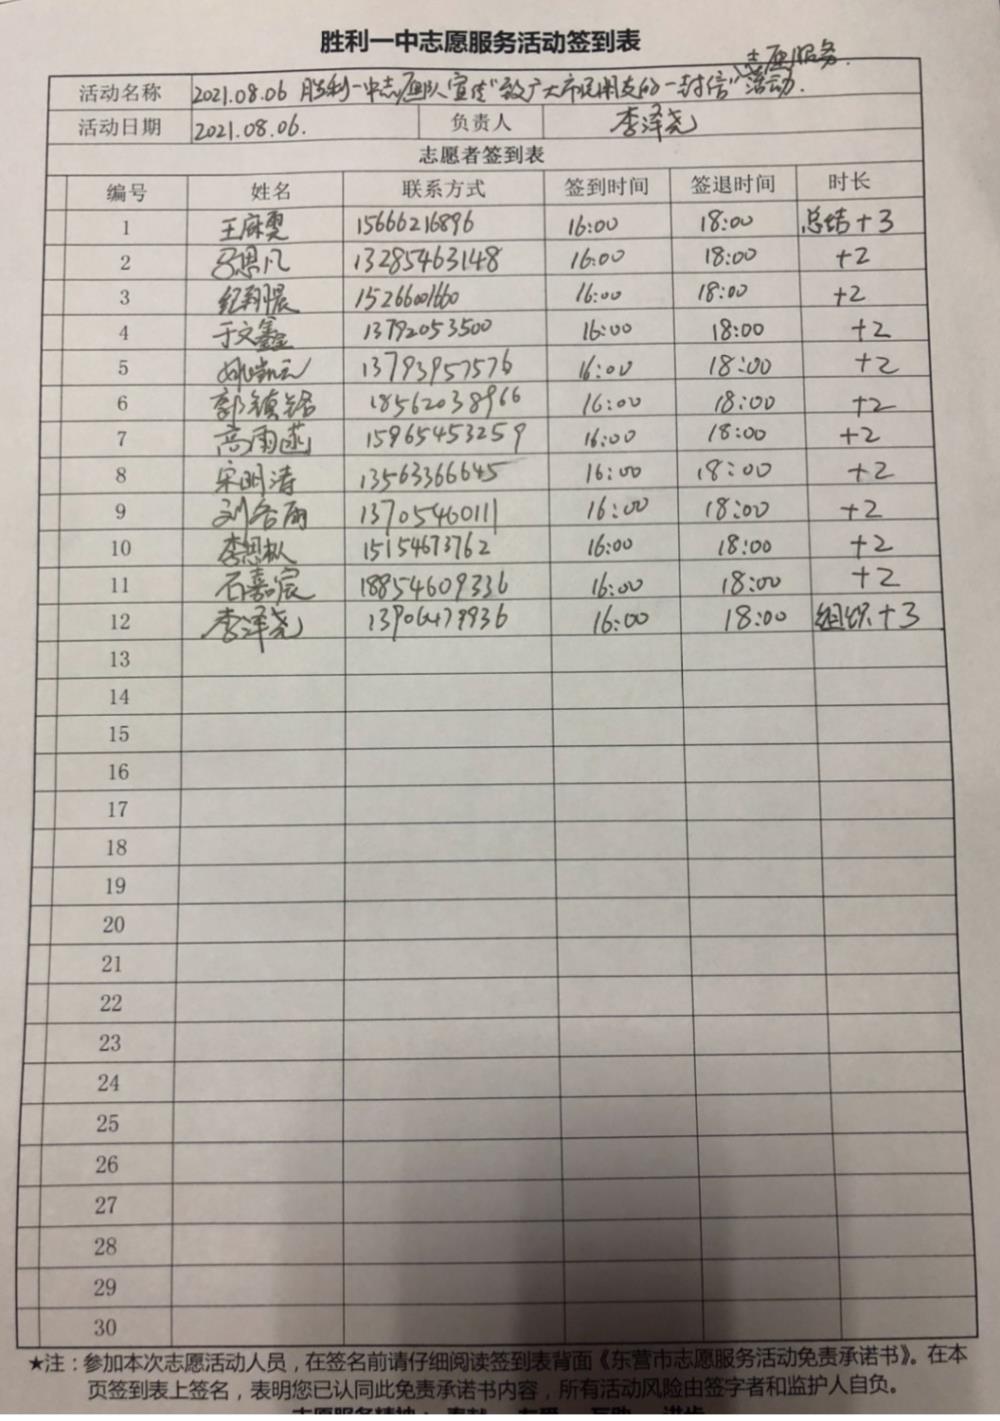 胜利一中志愿服务活动签到表
志愿服务.
活动名称 2021.08.06 胜利一中志愿队宣传"致广大市民朋友的一封信"活动.
活动日期 2021.08.06. 负责人 李泽尧
志愿者签到表
编号 姓名 联系方式 签到时间 签退时间 时长
1 15666216896 16:00 18:00 总结+3
2 吕思凡 13285463148 16:00 18:00 +2
3 纪翔晨 15266001660 16:00 18:00 +2
4 于文鑫 13792053500 16:00 18:00 +2
5 13793957576 16:00 18:00 +2
6 郭镇铭 18562038966 16:00 18:00 +2
7 高雨菡 15965453259 16:00 18:00 +2
8 宋明清 13563366645 16:00 18:00 +2
9 13705460111 16:00 18:00 +2
10 李思枞 15154673762 16:00 18:00 +2
11 石嘉宸 18854609336 16:00 18:00 +2
12 李泽尧 16:00 18:00 组织+3
13
14
15
16
17
18
19
20
21
22
23
24
25
26
27
28
29
30
★注：参加本次志愿活动人员，在签名前请仔细阅读签到表背面《东营市志愿服务活动免责承诺书》。在本
页签到表上签名，表明您已认同此免责承诺书内容，所有活动风险由签字者和监护人自负。
志愿服务精神：奉献 友爱 互助 进步